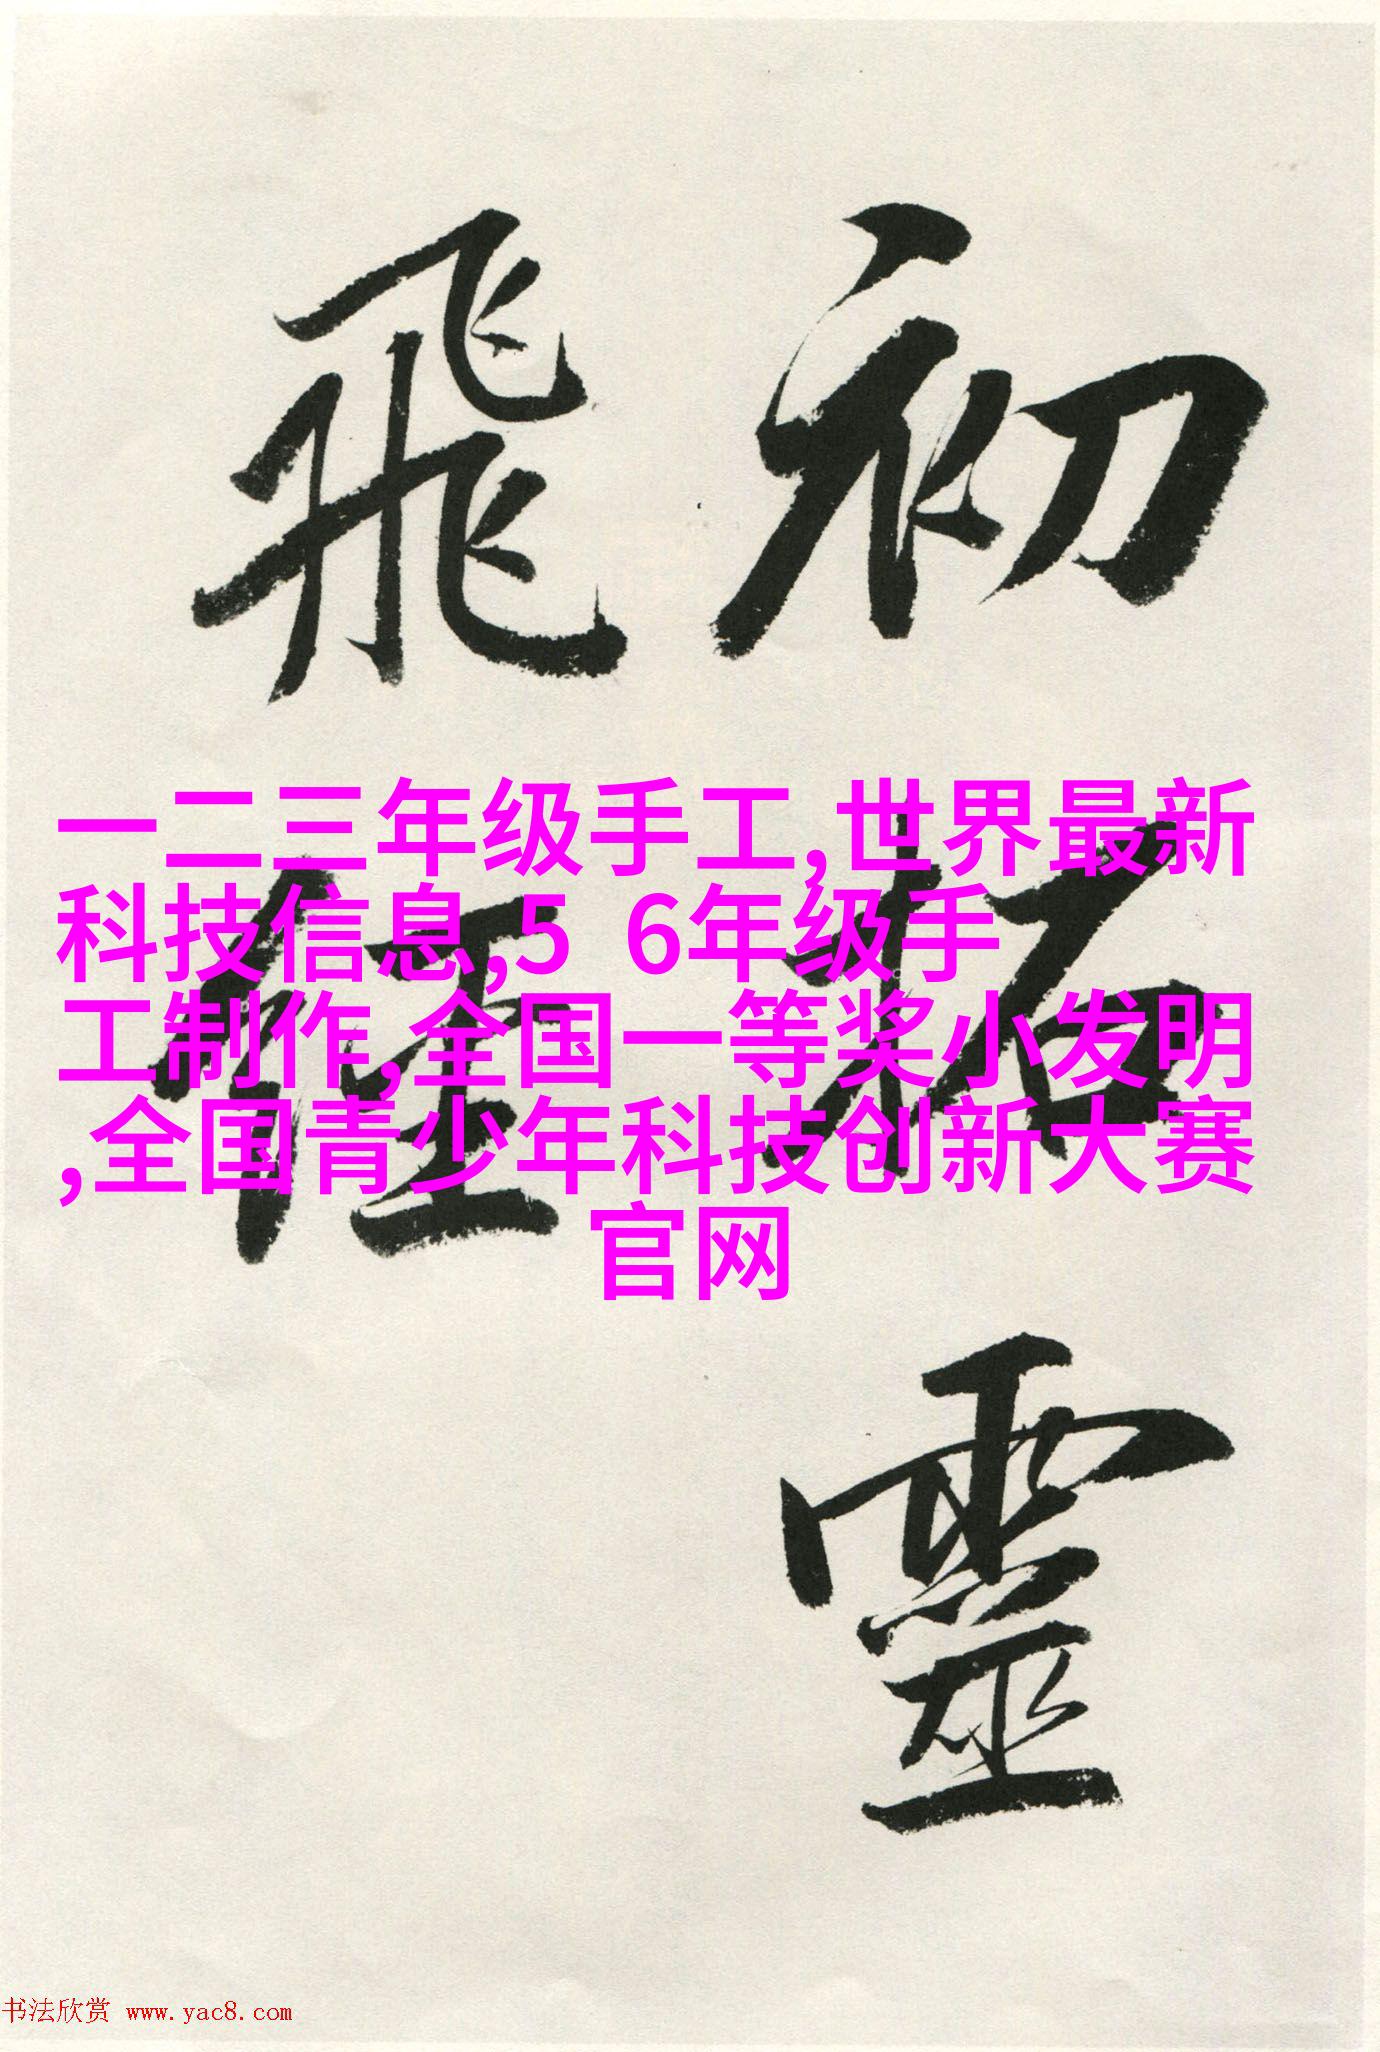 初拓靈
飛經
一二三年级手工,世界最新
科技信息,5 6年级手
工制作,全国一等奖小发明
,全国青少年科技创新大赛
官网
书法欣赏 www.yac8.com